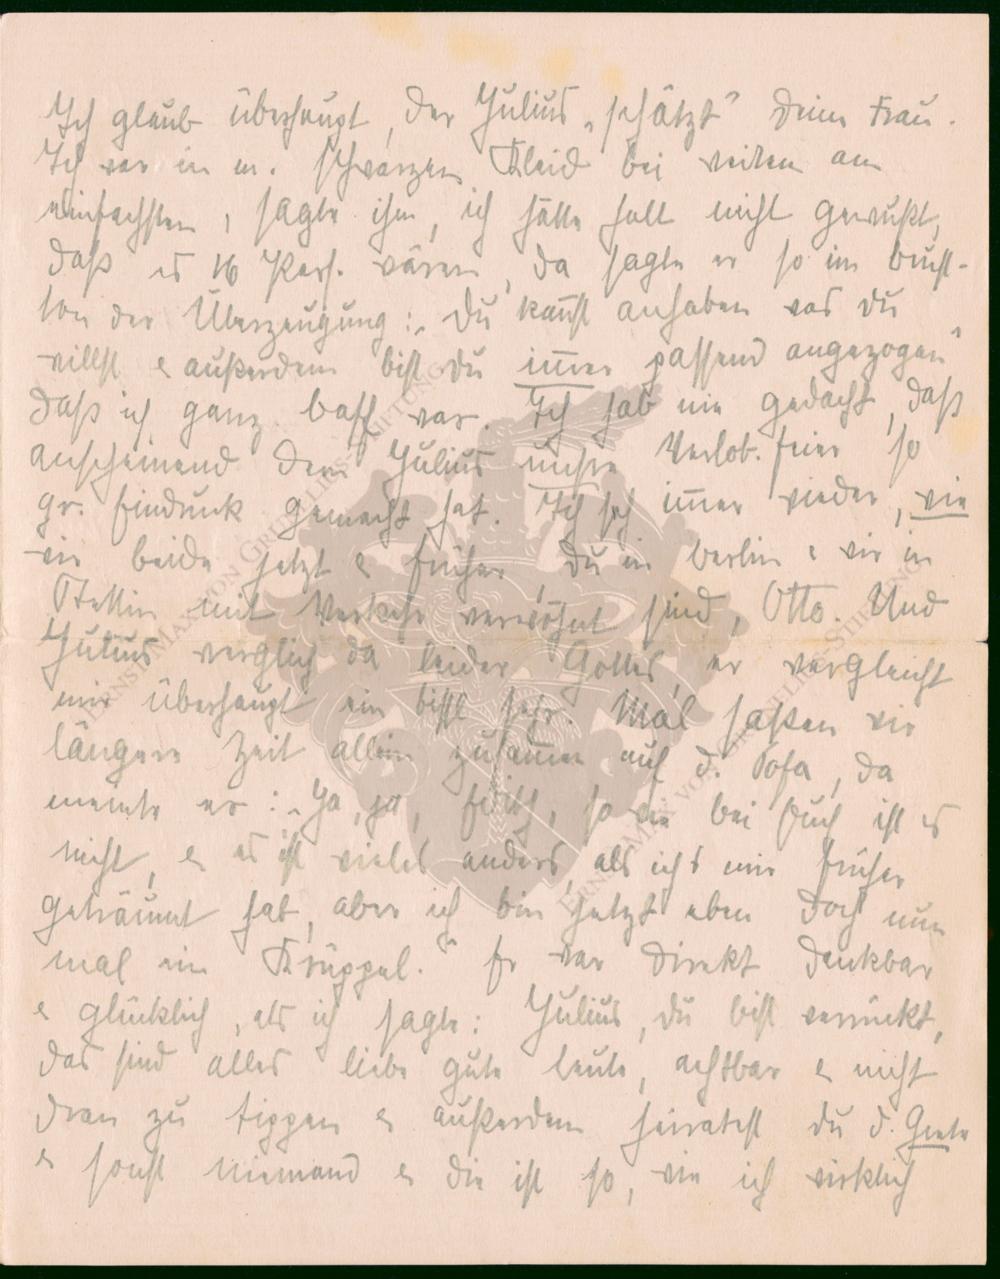 Ich glaub überhaupt, der Julius „schätzt" Deine Frau.
Ich war in m. schwarzen Kleid bei weitem am
einfachsten, sagte ihm, ich hätte halt nicht gewußt,
daß es 16 Pers. wären, da sagte er so im Brust-
ton der Überzeugung: „Du kannst anhaben was Du
willst & außerdem bist Du immer passend angezogen"
daß ich ganz baff war. Ich hab nie gedacht, daß
anscheinend dem Julius unsre Verlob.feier so
gr. Eindruck gemacht hat. Ich seh immer wieder, wie
wir beide jetzt & früher, Du in Berlin & wir in
Stettin mit Verkehr verwöhnt sind, Otto. Und
Julius verglich da leider Gottes, er vergleicht
mir überhaupt ein bissl sehr. Mal saßen wir
längere Zeit allein zusammen auf d. Sofa, da
meinte er: „Ja, ja, so wie bei Euch ist es
nicht, & es ist vieles anders, als ich's mir früher
geträumt hab, aber ich bin jetzt eben doch nun
mal ein Krüppel." Er war direkt dankbar
& glücklich, als ich sagte: Julius, Du bist verrückt,
das sind alles liebe gute Leute, achtbar & nicht
dran zu tippen & außerdem heiratest Du d. Grete
& sonst niemand & die ist so, wie ich wirklich
ERNST MAX VON GRUNELIUS-STIFTUNG
ERNST MAX VON GRUNELIUS-STIFTUNG